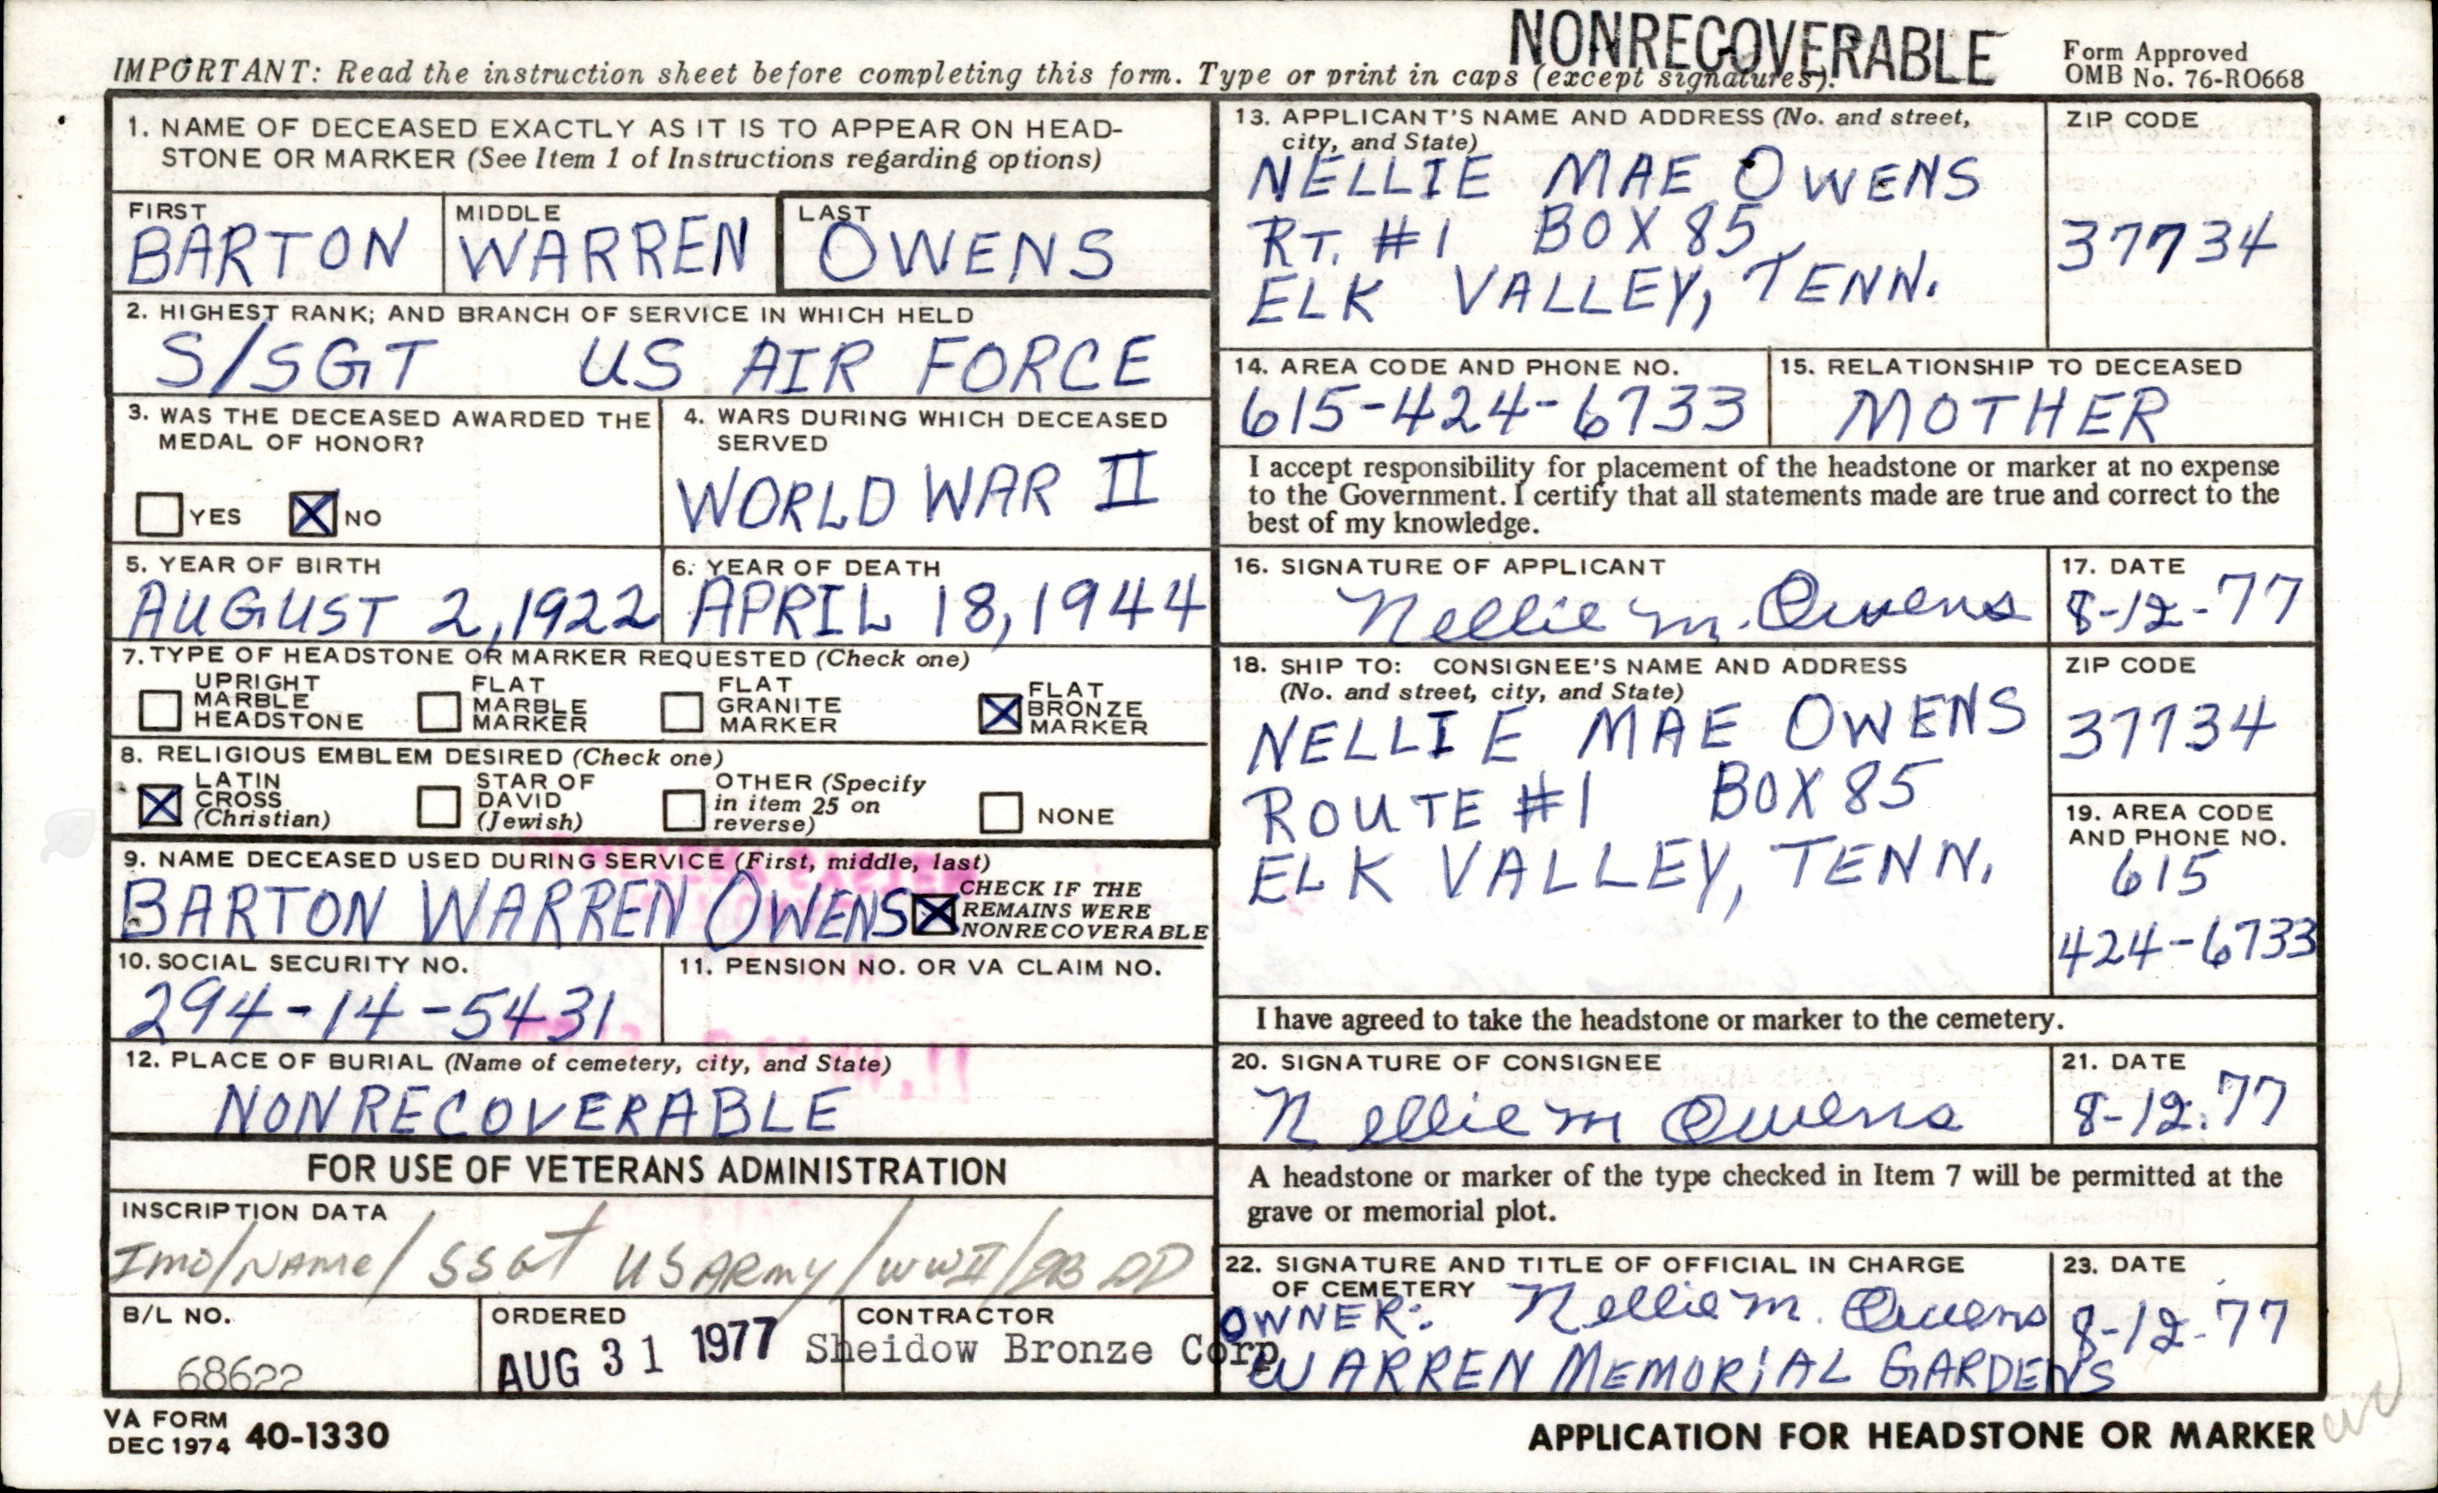 NONRECOVERABLE
IMPORTANT: Read the instruction sheet before completing this form. Type or print in caps (except signatures).
Form Approved
OMB No. 76-RO668
1. NAME OF DECEASED EXACTLY AS IT IS TO APPEAR ON HEAD-
STONE OR MARKER (See Item 1 of Instructions regarding options)
FIRST MIDDLE LAST
BARTON WARREN OWENS
2. HIGHEST RANK; AND BRANCH OF SERVICE IN WHICH HELD
S/SGT US AIR FORCE
3. WAS THE DECEASED AWARDED THE
MEDAL OF HONOR?
YES NO
4. WARS DURING WHICH DECEASED
SERVED
WORLD WAR II
5. YEAR OF BIRTH
AUGUST 2, 1922
6. YEAR OF DEATH
APRIL 18, 1944
7. TYPE OF HEADSTONE OR MARKER REQUESTED (Check one)
UPRIGHT
MARBLE
HEADSTONE
FLAT
MARBLE
MARKER
FLAT
GRANITE
MARKER
FLAT
BRONZE
MARKER
8. RELIGIOUS EMBLEM DESIRED (Check one)
LATIN
CROSS
(Christian)
STAR OF
DAVID
(Jewish)
OTHER (Specify
in item 25 on
reverse)
NONE
9. NAME DECEASED USED DURING SERVICE (First, middle, last)
BARTON WARREN OWENS
CHECK IF THE
REMAINS WERE
NONRECOVERABLE
10. SOCIAL SECURITY NO.
294-14-5431
11. PENSION NO. OR VA CLAIM NO.
12. PLACE OF BURIAL (Name of cemetery, city, and State)
NONRECOVERABLE
FOR USE OF VETERANS ADMINISTRATION
INSCRIPTION DATA
Imo/Name/ SSGT US ARMY/WWII/DB DD
B/L NO.
68622
ORDERED
AUG 31 1977
CONTRACTOR
Sheidow Bronze Corp
VA FORM
DEC 1974 40-1330
13. APPLICANT'S NAME AND ADDRESS (No. and street,
city, and State)
NELLIE MAE OWENS
RT. #1 BOX 85
ELK VALLEY, TENN.
ZIP CODE
37734
14. AREA CODE AND PHONE NO.
615-424-6733
15. RELATIONSHIP TO DECEASED
MOTHER
I accept responsibility for placement of the headstone or marker at no expense
to the Government. I certify that all statements made are true and correct to the
best of my knowledge.
16. SIGNATURE OF APPLICANT
Nellie M. Owens
17. DATE
8-12-77
18. SHIP TO: CONSIGNEE'S NAME AND ADDRESS
(No. and street, city, and State)
NELLIE MAE OWENS
ROUTE #1 BOX 85
ELK VALLEY, TENN.
ZIP CODE
37734
19. AREA CODE
AND PHONE NO.
615
424-6733
I have agreed to take the headstone or marker to the cemetery.
20. SIGNATURE OF CONSIGNEE
Nellie M Owens
21. DATE
8-12.77
A headstone or marker of the type checked in Item 7 will be permitted at the
grave or memorial plot.
22. SIGNATURE AND TITLE OF OFFICIAL IN CHARGE
OF CEMETERY
OWNER: Nellie M. Owens
WARREN MEMORIAL GARDENS
23. DATE
8-12-77
APPLICATION FOR HEADSTONE OR MARKER